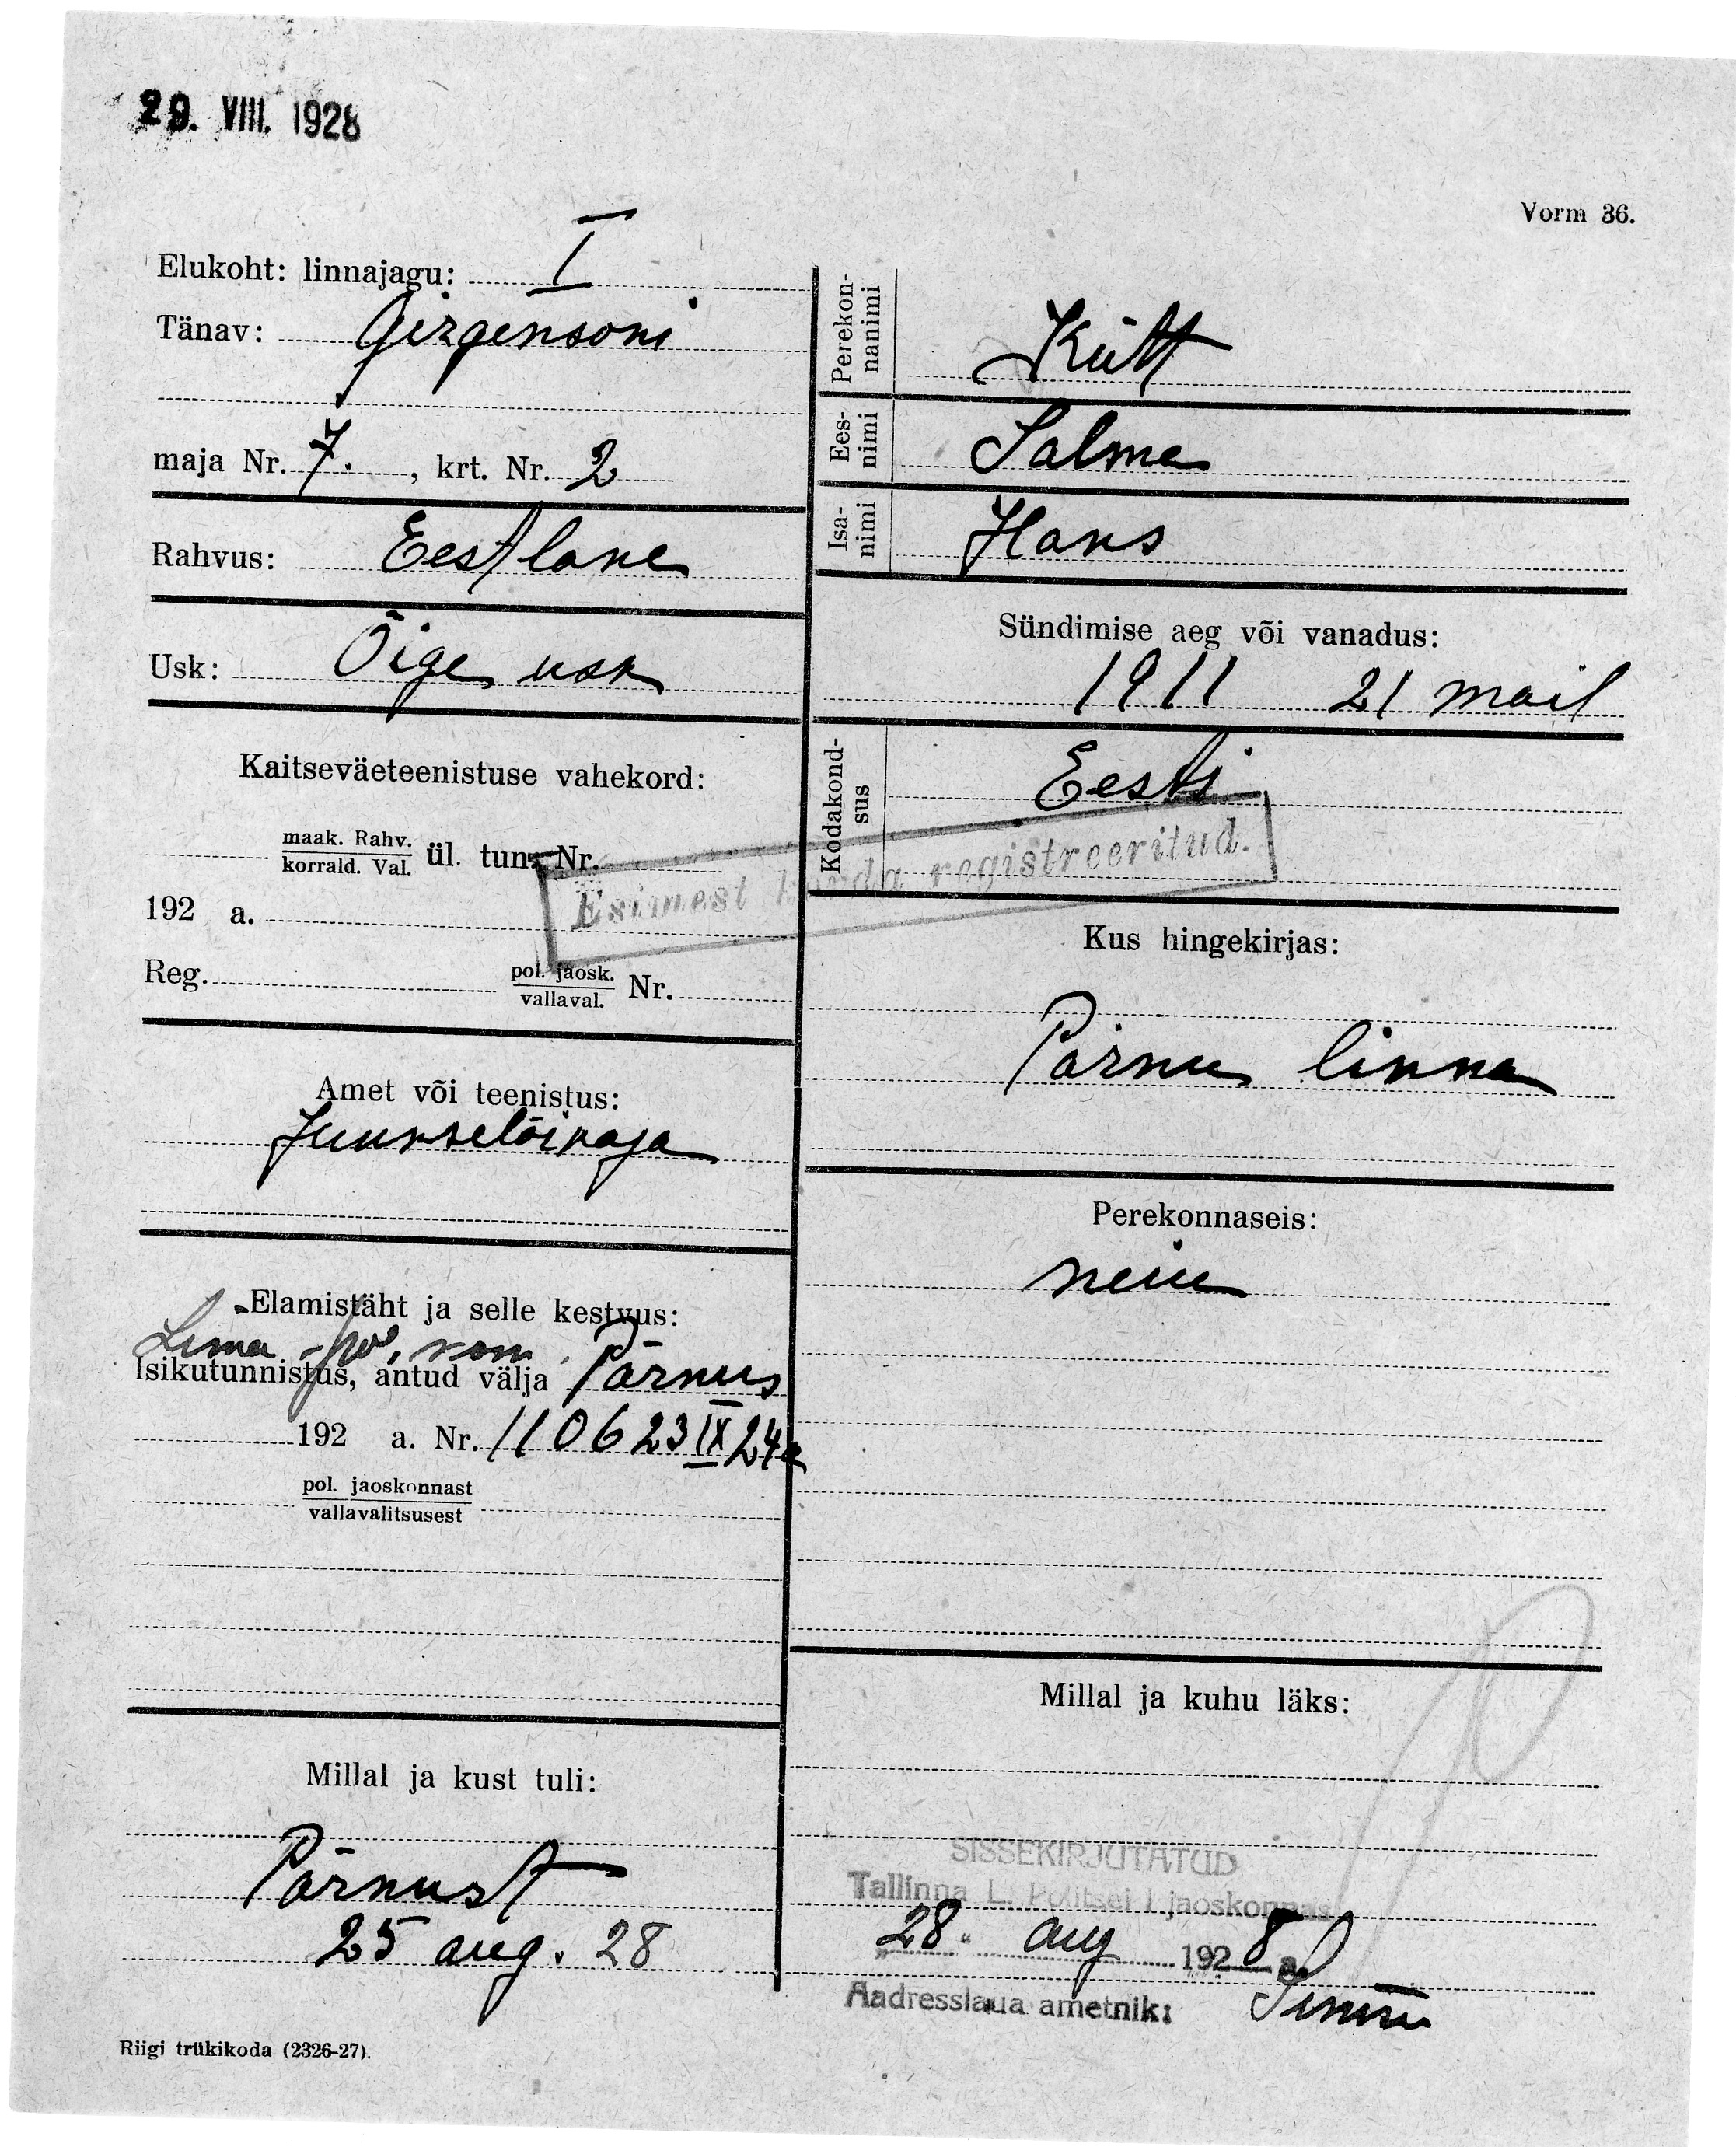 29. VIII. 1928
Vorm 36.
Elukoht: linnajagu: I
Tänav: Girgensoni
maja Nr. 7. , krt. Nr. 2
Rahvus: Eestlane
Usk: Õige usk
Kaitseväeteenistuse vahekord:
maak. Rahv.
korrald. Val. ül. tun. Nr.
192 a.
Reg. pol. jaosk. Nr.
vallaval.
Amet või teenistus:
Juukselõikaja
Elamistäht ja selle kestvus:
Isikutunnistus, antud välja Pärnus
192 a. Nr. 1106 23 IX 24 a
pol. jaoskonnast
vallavalitsusest
Millal ja kust tuli:
Pärnust
25 aug. 28
Riigi trükikoda (2326-27).
Perekonnanimi
Kütt
Eesnimi
Salme
Isanimi
Hans
Sündimise aeg või vanadus:
1911 21 mail
Kodakondsus
Eesti
Esimest korda registreeritud.
Kus hingekirjas:
Pärnu linna
Perekonnaseis:
neiu
Millal ja kuhu läks:
SISSEKIRJUTATUD
Tallinna L. Politsei I jaoskonnas
„28“ aug 1928 a.
Aadresslaua ametnik: